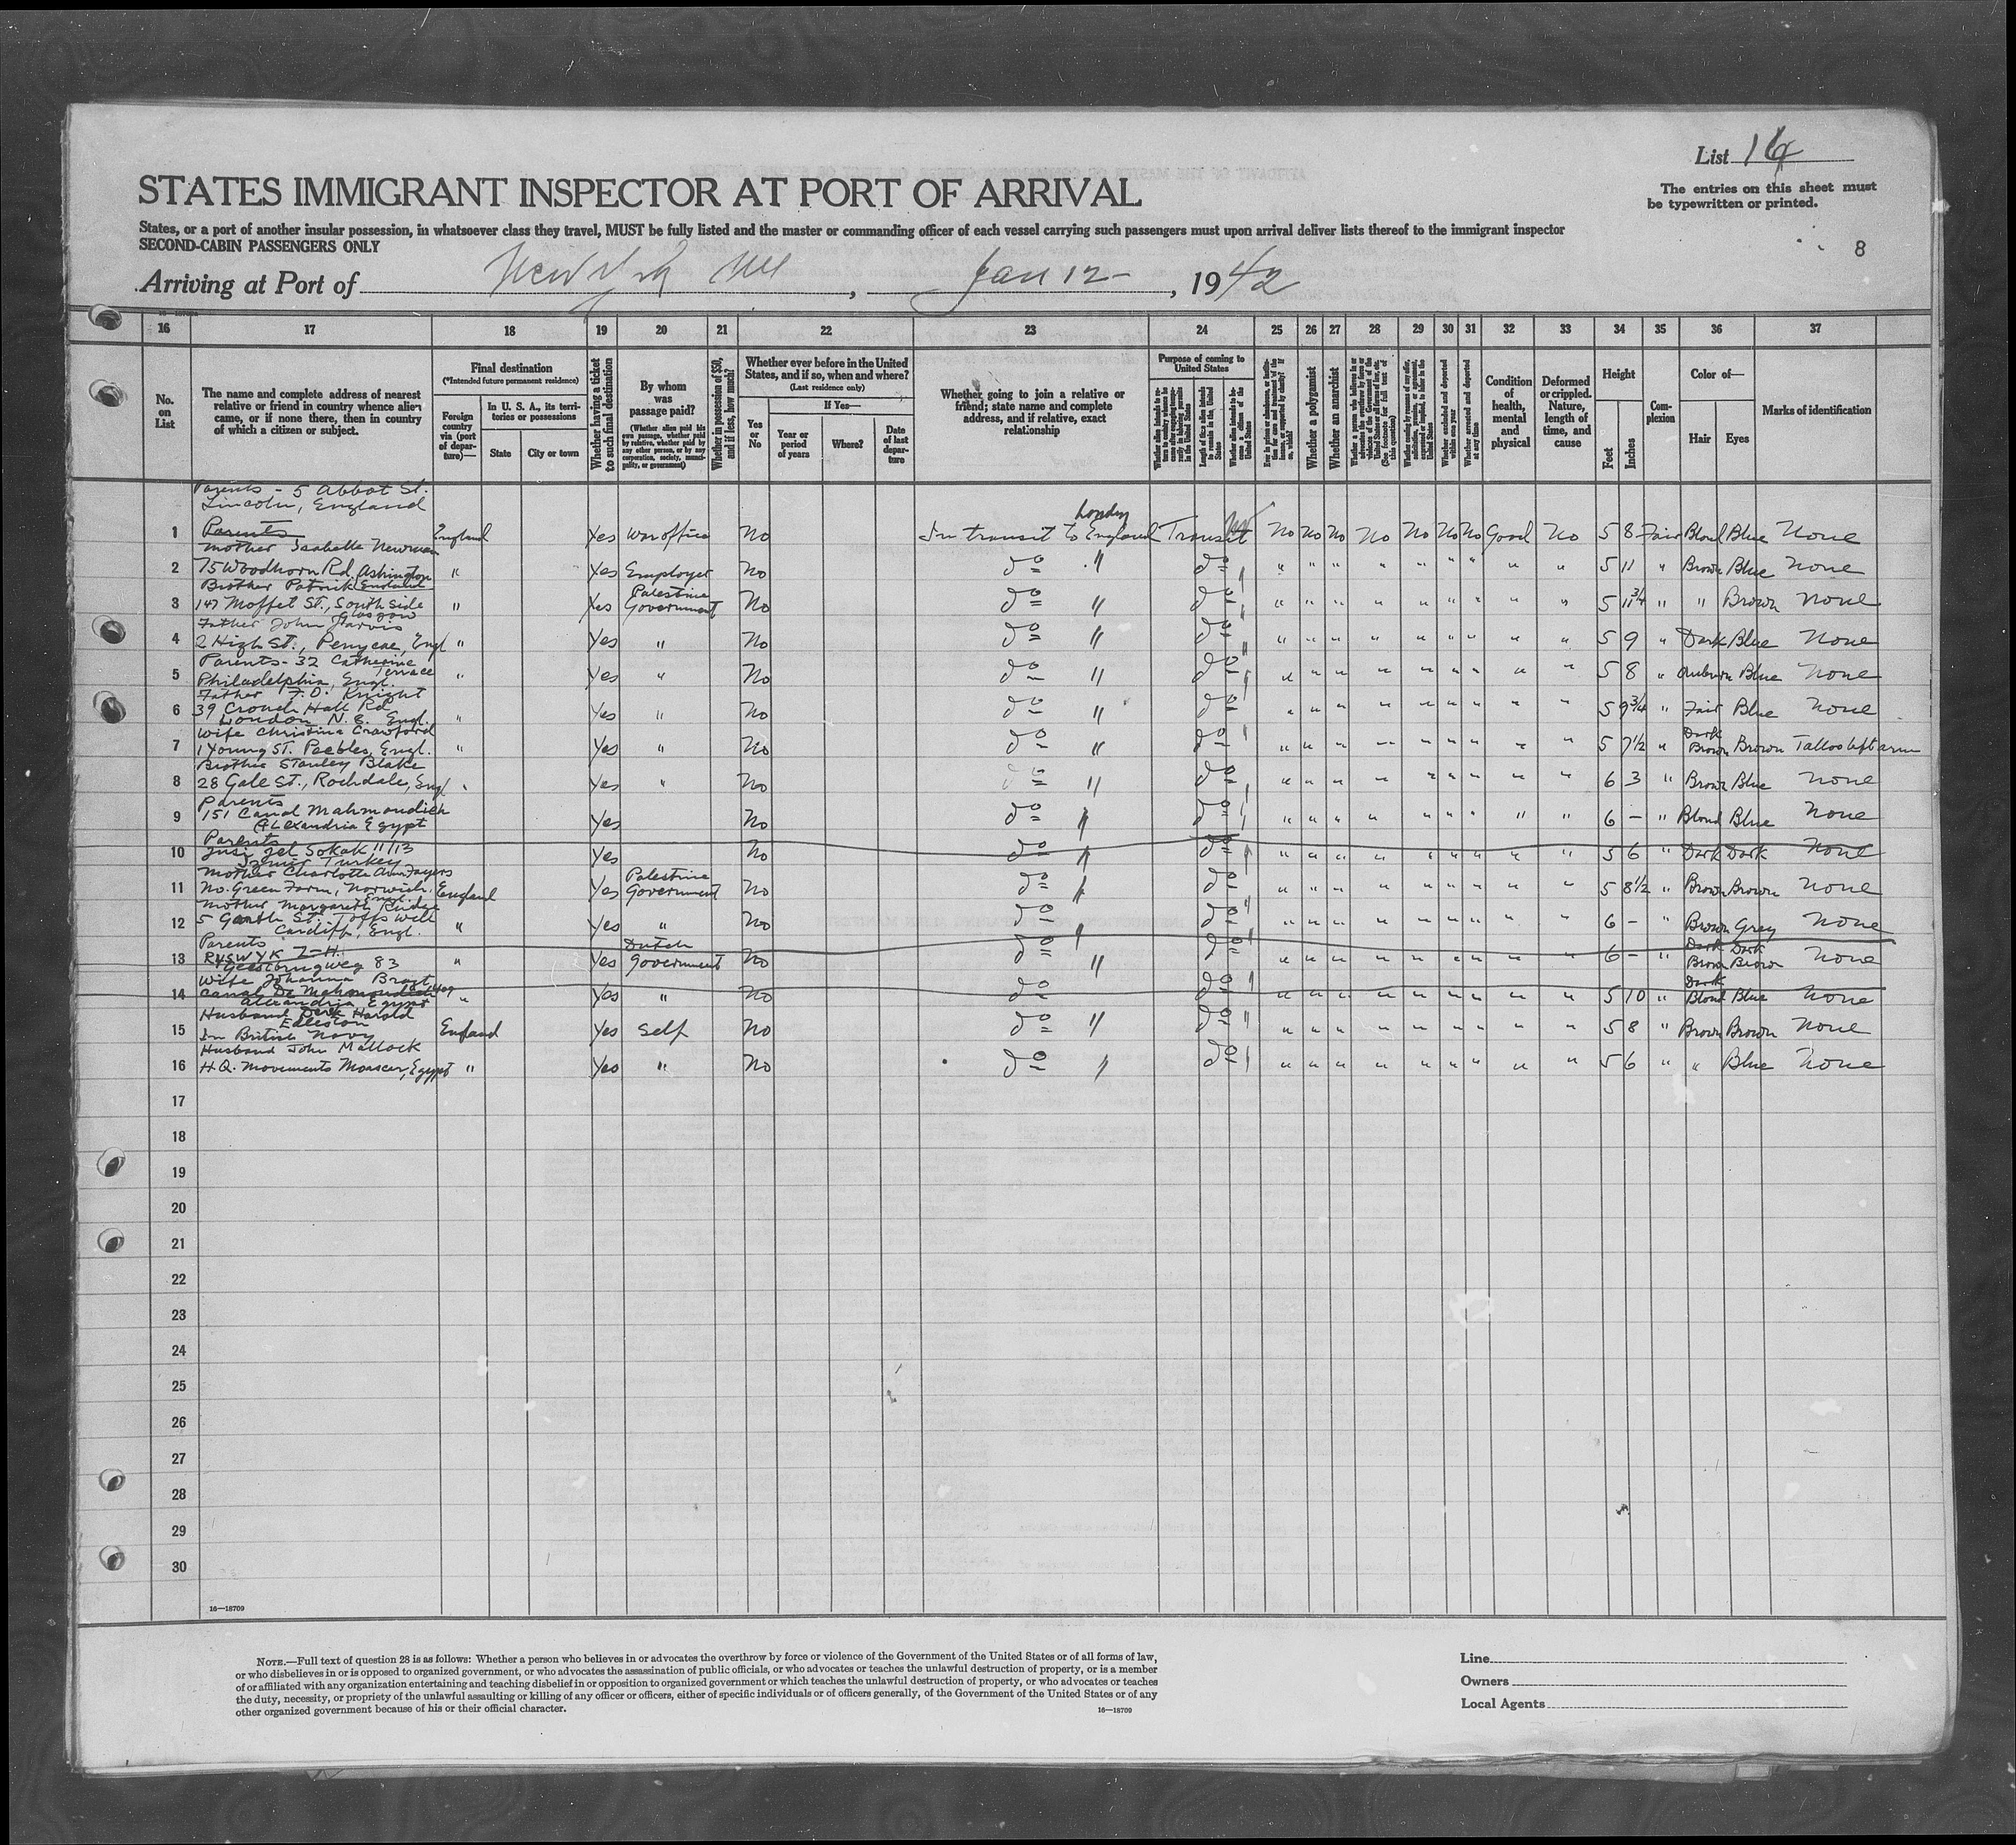 List 16
The entries on this sheet must
be typewritten or printed.
STATES IMMIGRANT INSPECTOR AT PORT OF ARRIVAL
States, or a port of another insular possession, in whatsoever class they travel, MUST be fully listed and the master or commanding officer of each vessel carrying such passengers must upon arrival deliver lists thereof to the immigrant inspector
SECOND-CABIN PASSENGERS ONLY
8
Arriving at Port of New York, Jan 12-, 1942
16 17 18 19 20 21 22 23 24 25 26 27 28 29 30 31 32 33 34 35 36 37
No. on List
The name and complete address of nearest relative or friend in country whence alien came, or if none there, then in country of which a citizen or subject.
Final destination
(*Intended future permanent residence)
Foreign country via (port of departure)—
In U. S. A., its territories or possessions
State
City or town
Whether having a ticket to such final destination
By whom was passage paid?
(Whether alien paid his own passage, whether paid by relative, whether paid by any other person, or by any corporation, society, municipality, or government)
Whether in possession of $50, and if less, how much?
Whether ever before in the United States, and if so, when and where?
(Last residence only)
Yes or No
If Yes—
Year or period of years
Where?
Date of last departure
Whether going to join a relative or friend; state name and complete address, and if relative, exact relationship
Purpose of coming to United States
Whether a polygamist
Whether an anarchist
Whether arrested and deported at any time
Condition of health, mental and physical
Deformed or crippled. Nature, length of time, and cause
Height
Feet
Inches
Complexion
Color of—
Hair
Eyes
Marks of identification
Parents - 5 Abbot St.
Lincoln, England
1 Parents England Yes War office No In transit to London England Transit No No No No No No No Good No 5 8 Fair Blond Blue None
Mother Isabelle Newman
2 75 Woodhorn Rd. Ashington England " Yes Employer No do " do " " " " " " " " " 5 11 " Brown Blue None
Brother Patrick
3 147 Moffet St., South side Glasgow " Yes Palestine Government No do " do " " " " " " " " " 5 11 3/4 " " Brown None
Father John Jarvis
4 2 High St., Penycae, Engl " Yes " No do " do " " " " " " " " " 5 9 " Dark Blue None
Parents - 32 Catherine Terrace
5 Philadelphia, Engl. " Yes " No do " do " " " " " " " " " 5 8 " Auburn Blue None
Father F.O. Knight
6 39 Crouch Hall Rd
London N. 8. Engl. " Yes " No do " do " " " " " " " " " 5 9 3/4 " Fair Blue None
Wife Christina Crawford
7 1 Young St. Peebles, Engl. " Yes " No do " do " " " " " " " " " 5 7 1/2 " Dark Brown Brown Tattoo left arm
Brother Stanley Blake
8 28 Gale St., Rochdale, Engl " Yes " No do " do " " " " " " " " " 6 3 " Brown Blue None
Parents
9 151 Canal Mahmoudieh
Alexandria Egypt Yes No do " do " " " " " " " " " 6 - " Blond Blue None
Parents
10 Sokak 11/13
Izmir Turkey Yes No do " do " " " " " " " " " 5 6 " Dark Dark None
Mother Charlotte Ann Fayers
11 No. Green Farm, Norwich, Engl. England Yes Palestine Government No do " do " " " " " " " " " 5 8 1/2 " Brown Brown None
Mother Margareth Rudge
12 5 Garth St. Taffs Well
Cardiff, Engl. " Yes " No do " do " " " " " " " " " 6 - " Brown Grey None
Parents
13 RYSWYK Z-H.
Geestbrugweg 83 " Yes Dutch Government No do " do " " " " " " " " " 6 - " Dark Brown Dark Brown None
Wife Johanna
14 Canal De Mahmoudieh 409
Alexandria Egypt " Yes " No do do " " " " " " " " " 5 10 " Dark Blond Blue None
Husband Derek Harold
Edleston
15 In British Navy England Yes Self No do " do " " " " " " " " " 5 8 " Brown Brown None
Husband John Mallock
16 H.Q. Movements Moascar, Egypt " Yes " No do " do " " " " " " " " " 5 6 " " Blue None
17
18
19
20
21
22
23
24
25
26
27
28
29
30
16—18709
NOTE.—Full text of question 28 is as follows: Whether a person who believes in or advocates the overthrow by force or violence of the Government of the United States or of all forms of law,
or who disbelieves in or is opposed to organized government, or who advocates the assassination of public officials, or who advocates or teaches the unlawful destruction of property, or is a member
of or affiliated with any organization entertaining and teaching disbelief in or opposition to organized government or which teaches the unlawful destruction of property, or who advocates or teaches
the duty, necessity, or propriety of the unlawful assaulting or killing of any officer or officers, either of specific individuals or of officers generally, of the Government of the United States or of any
other organized government because of his or their official character.
16—18709
Line
Owners
Local Agents